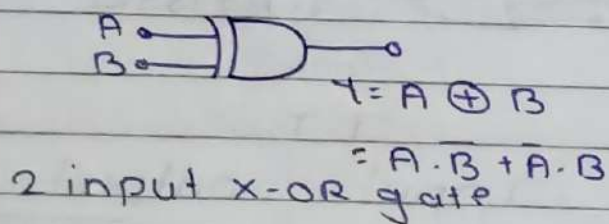 A
B
Y = A ⊕ B
= A . B̅ + A̅ . B
2 input X-OR gate